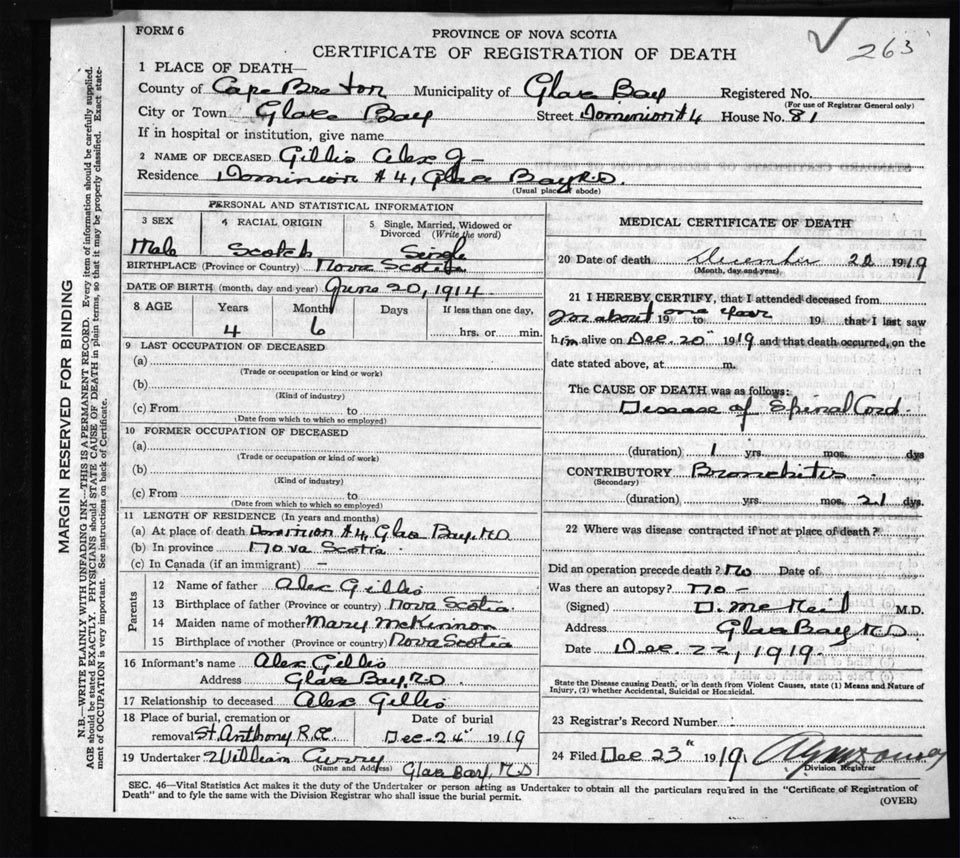 FORM 6
PROVINCE OF NOVA SCOTIA
263
CERTIFICATE OF REGISTRATION OF DEATH
1 PLACE OF DEATH—
County of Cape Breton Municipality of Glace Bay Registered No.
(For use of Registrar General only)
City or Town Glace Bay Street Dominion #4 House No. 81
If in hospital or institution, give name
2 NAME OF DECEASED Gillis Alex J-
Residence Dominion #4, Glace Bay
(Usual place of abode)
PERSONAL AND STATISTICAL INFORMATION
3 SEX
Male
4 RACIAL ORIGIN
Scotch
5 Single, Married, Widowed or
Divorced (Write the word)
Single
BIRTHPLACE (Province or Country) Nova Scotia
DATE OF BIRTH (month, day and year) June 20, 1914.
8 AGE Years Months Days If less than one day,
4 6 hrs. or min.
9 LAST OCCUPATION OF DECEASED
(a)
(Trade or occupation or kind or work)
(b)
(Kind of industry)
(c) From to
(Date from which to which so employed)
10 FORMER OCCUPATION OF DECEASED
(a)
(Trade or occupation or kind of work)
(b)
(Kind of industry)
(c) From to
(Date from which to which so employed)
11 LENGTH OF RESIDENCE (In years and months)
(a) At place of death Dominion #4, Glace Bay,
(b) In province Nova Scotia
(c) In Canada (if an immigrant) –
Parents
12 Name of father Alex Gillis
13 Birthplace of father (Province or country) Nova Scotia.
14 Maiden name of mother Mary McKinnon
15 Birthplace of mother (Province or country) Nova Scotia
16 Informant's name Alex Gillis
Address Glace Bay,
17 Relationship to deceased Alex Gillis
18 Place of burial, cremation or
removal St. Anthony R.C.
Date of burial
Dec. 24" 1919
19 Undertaker William Curry
(Name and Address) Glace Bay,
MEDICAL CERTIFICATE OF DEATH
20 Date of death December 22 1919
(Month, day and year)
21 I HEREBY CERTIFY, that I attended deceased from
For about 19 to one year 19 that I last saw
him alive on Dec. 20" 1919 and that death occurred, on the
date stated above, at m.
The CAUSE OF DEATH was as follows:
Disease of Spinal Cord.
(duration) 1 yrs. mos. dys
CONTRIBUTORY Bronchitis
(Secondary)
(duration) yrs. mos. 21 dys.
22 Where was disease contracted if not at place of death?
Did an operation precede death? No Date of
Was there an autopsy? No -
(Signed) D. McNeil M.D.
Address Glace Bay
Date Dec. 22, 1919.
State the Disease causing Death, or in death from Violent Causes, state (1) Means and Nature of
Injury, (2) whether Accidental, Suicidal or Homicidal.
23 Registrar's Record Number
24 Filed Dec 23" 1919
Division Registrar
SEC. 46—Vital Statistics Act makes it the duty of the Undertaker or person acting as Undertaker to obtain all the particulars required in the "Certificate of Registration of
Death" and to fyle the same with the Division Registrar who shall issue the burial permit.
(OVER)
MARGIN RESERVED FOR BINDING
N.B.—WRITE PLAINLY WITH UNFADING INK—THIS IS A PERMANENT RECORD. Every item of information should be carefully supplied.
AGE should be stated EXACTLY. PHYSICIANS should STATE CAUSE OF DEATH in plain terms, so that it may be properly classified. Exact state-
ment of OCCUPATION is very important. See instructions on back of Certificate.